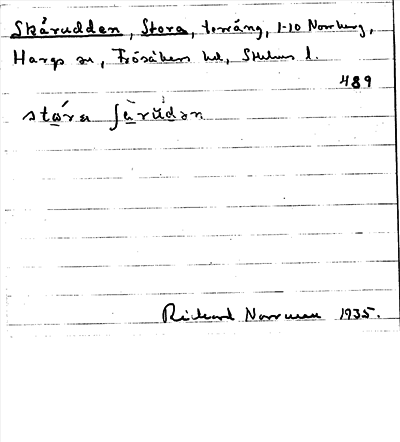 Skärudden, Stora, terräng, 1-10 Norrberg,
Hargs sn, Frösåkers hd, Sthlms l.
489
stóra ʃä̀rúdən
Rickard Norrman 1935.